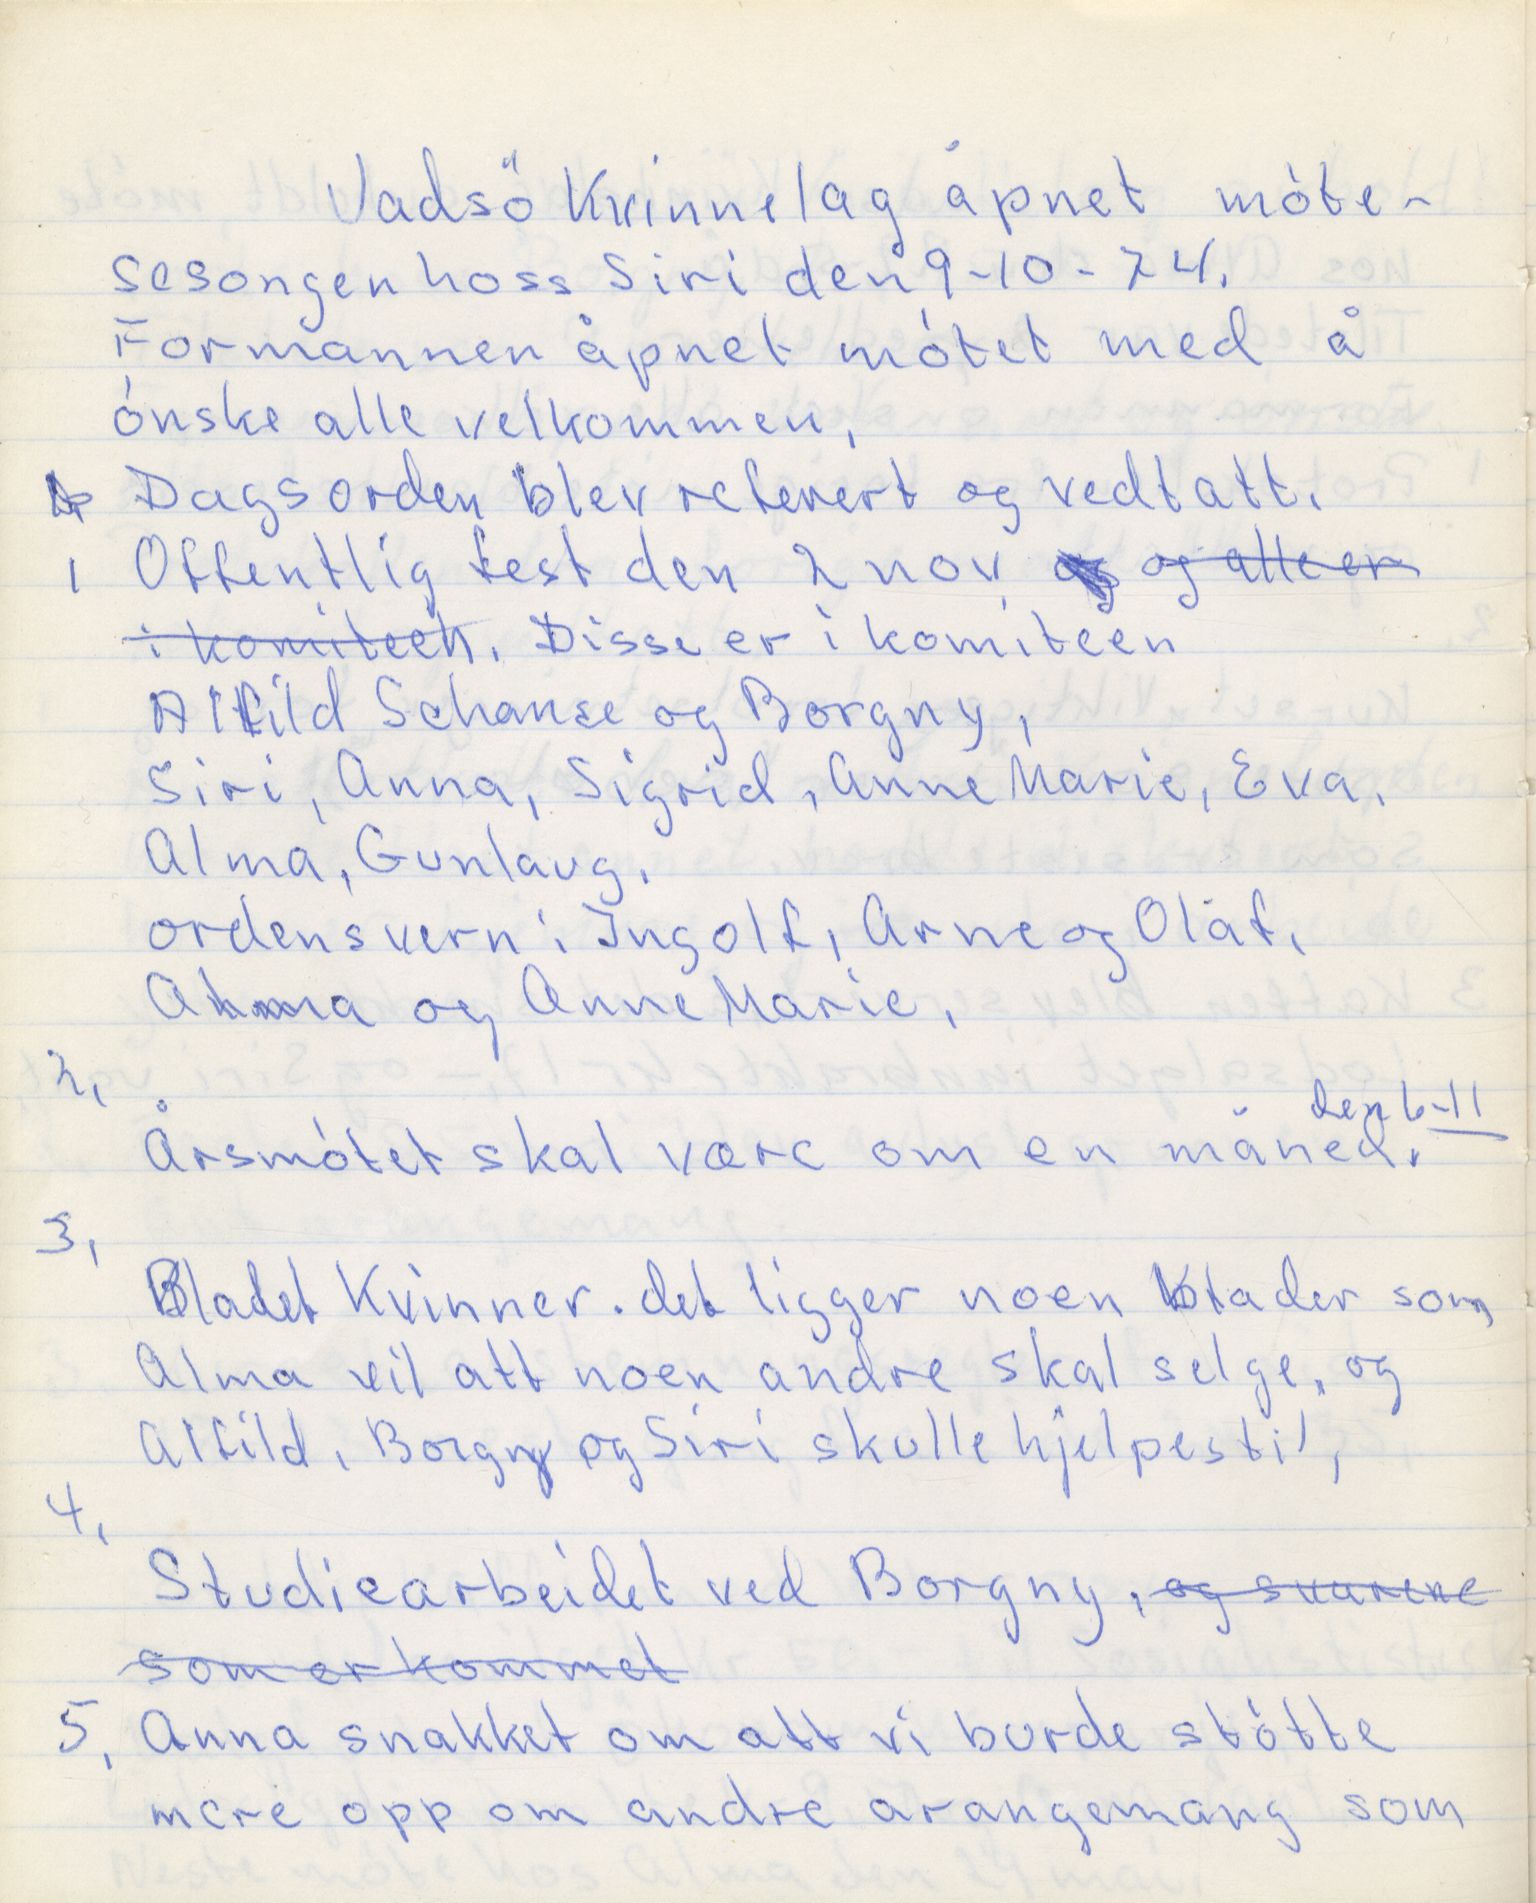 Vadsö Kvinnelag åpnet móte-
sesongen hoss Siri den 9-10-74.
Formannen åpnet mótet med å
ónske alle velkommen.
Dagsorden blev referert og vedtatt.
1 Offentlig fest den 2 nov og alle er
i komiteen. Disse er i komiteen
Alfild Schanse og Borgny,
Siri, Anna, Sigrid, Anne Marie, Eva.
Alma, Gunlaug.
ordensvern: Ingolf, Arne og Olaf.
Alma og Anne Marie.
2,
den 6-11
Årsmótet skal være om en måned.
3,
Bladet Kvinner. det ligger noen blader som
Alma vil att noen andre skal selge, og
Alfild, Borgny og Siri skulle hjelpes til,
4,
Studiearbeidet ved Borgny, og svarene
som er kommet
5, Anna snakket om att vi burde stótte
mere opp om andre arangemang som